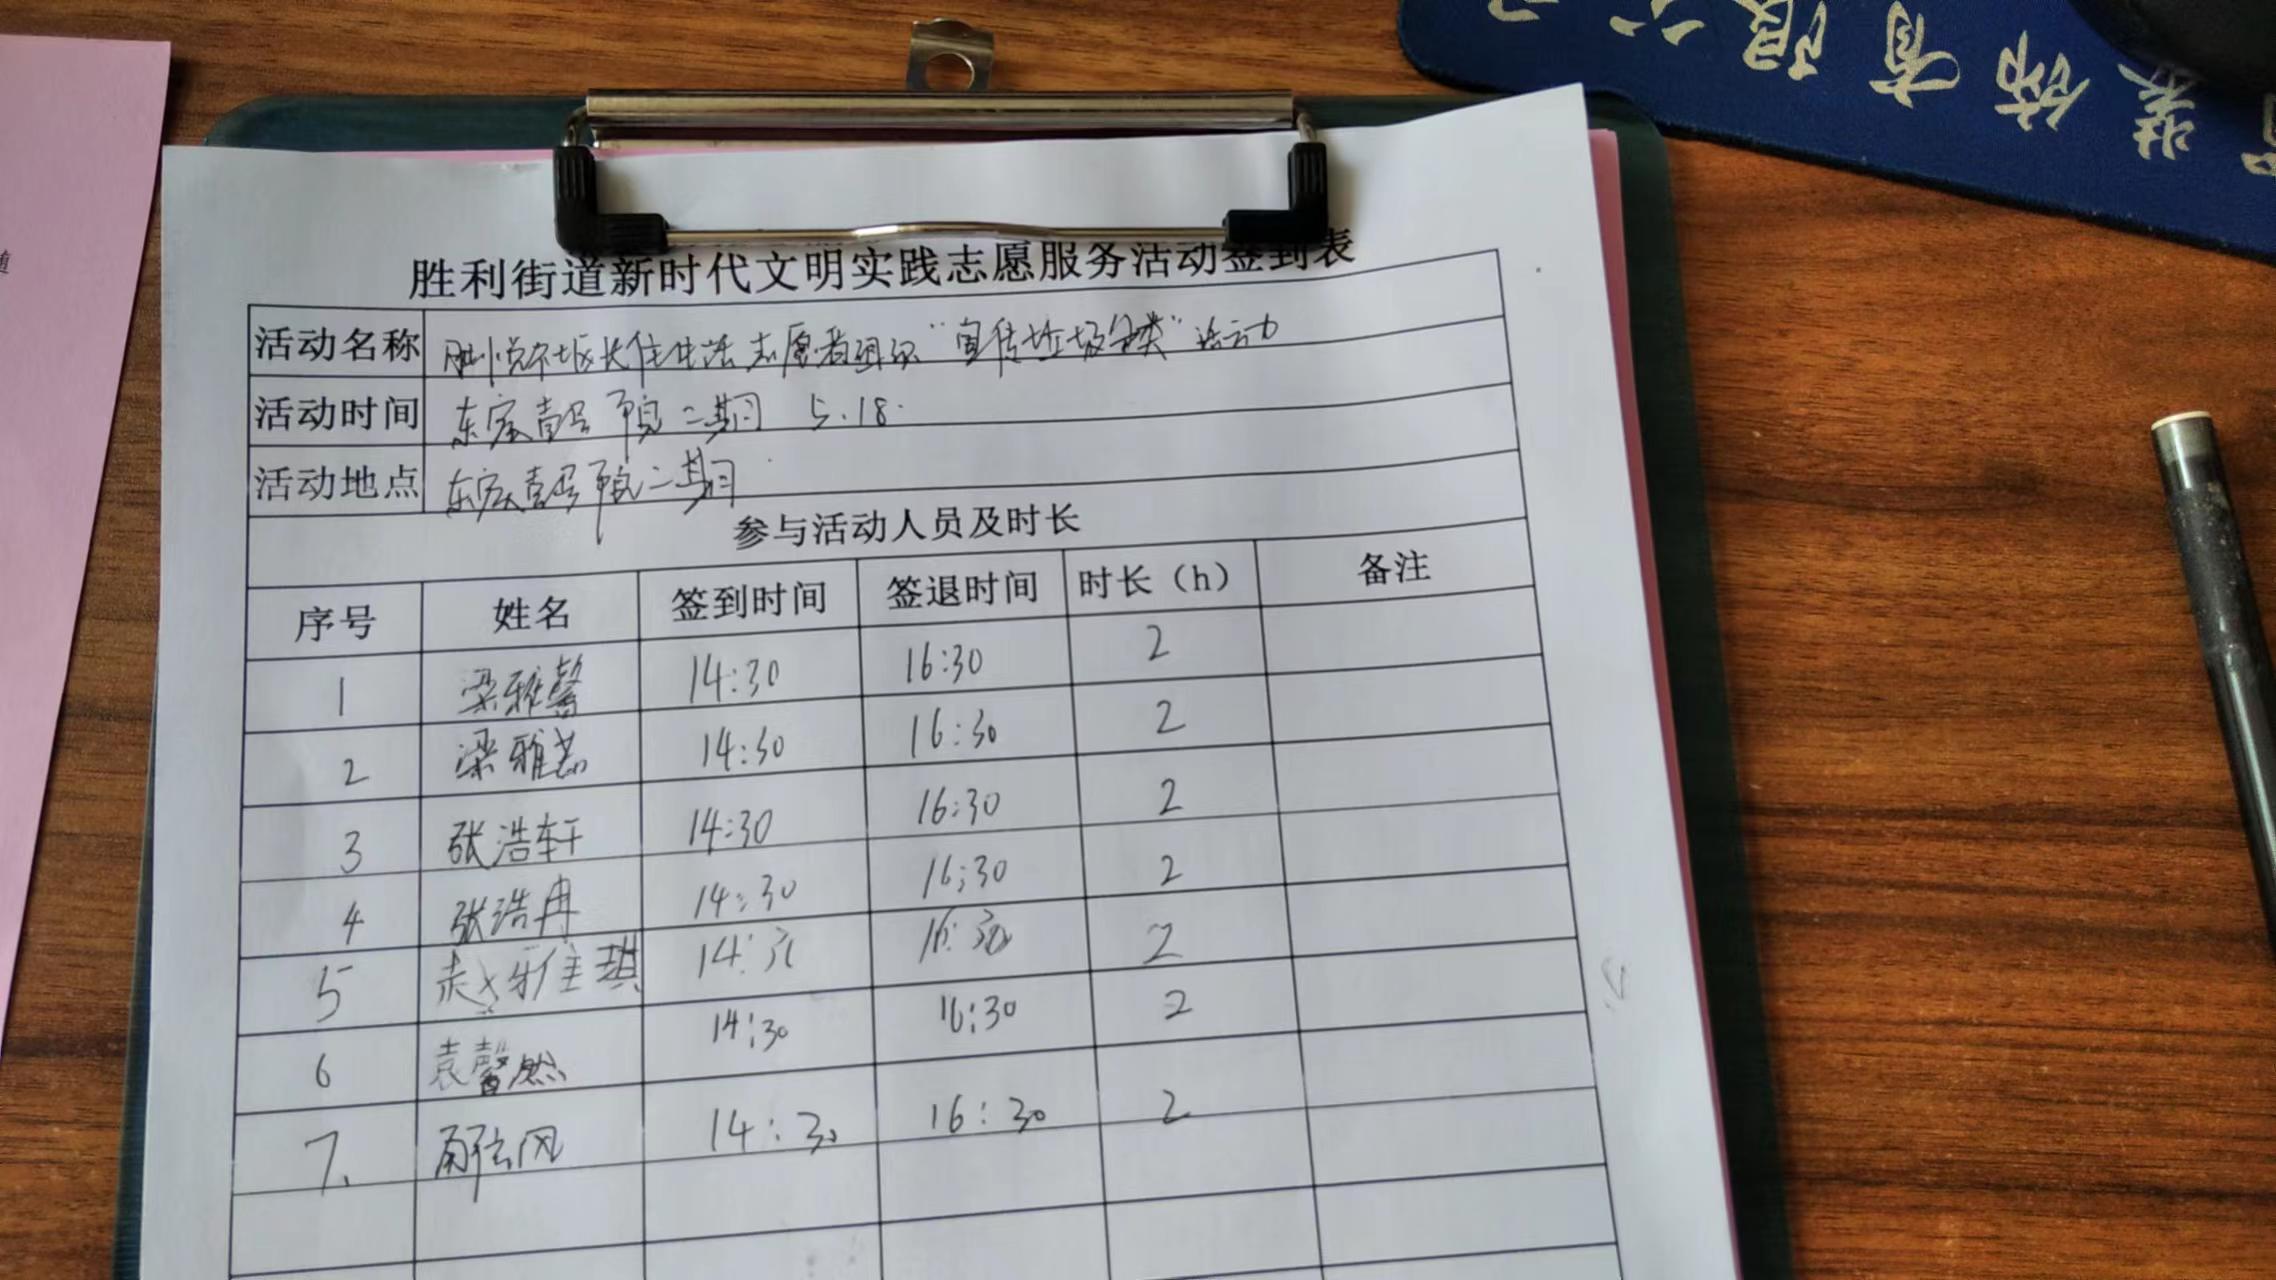 胜利街道新时代文明实践志愿服务活动签到表
活动名称 志愿者组织“宣传垃圾分类”活动
活动时间 东宸壹号 二期 5.18.
活动地点 东宸壹号 二期
参与活动人员及时长
序号 姓名 签到时间 签退时间 时长（h） 备注
1 梁雅馨 14:30 16:30 2
2 梁雅 14:30 16:30 2
3 张浩轩 14:30 16:30 2
4 张浩冉 14:30 16:30 2
5 赵雅琪 14:30 16:30 2
6 袁馨然 14:30 16:30 2
7. 14:30 16:30 2
有限
饰
装